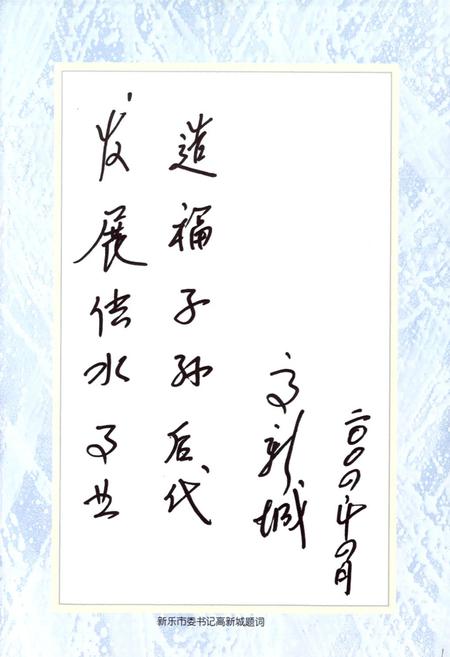 发展供水事业
造福子孙后代
高新城
二〇〇四年四月
新乐市委书记高新城题词